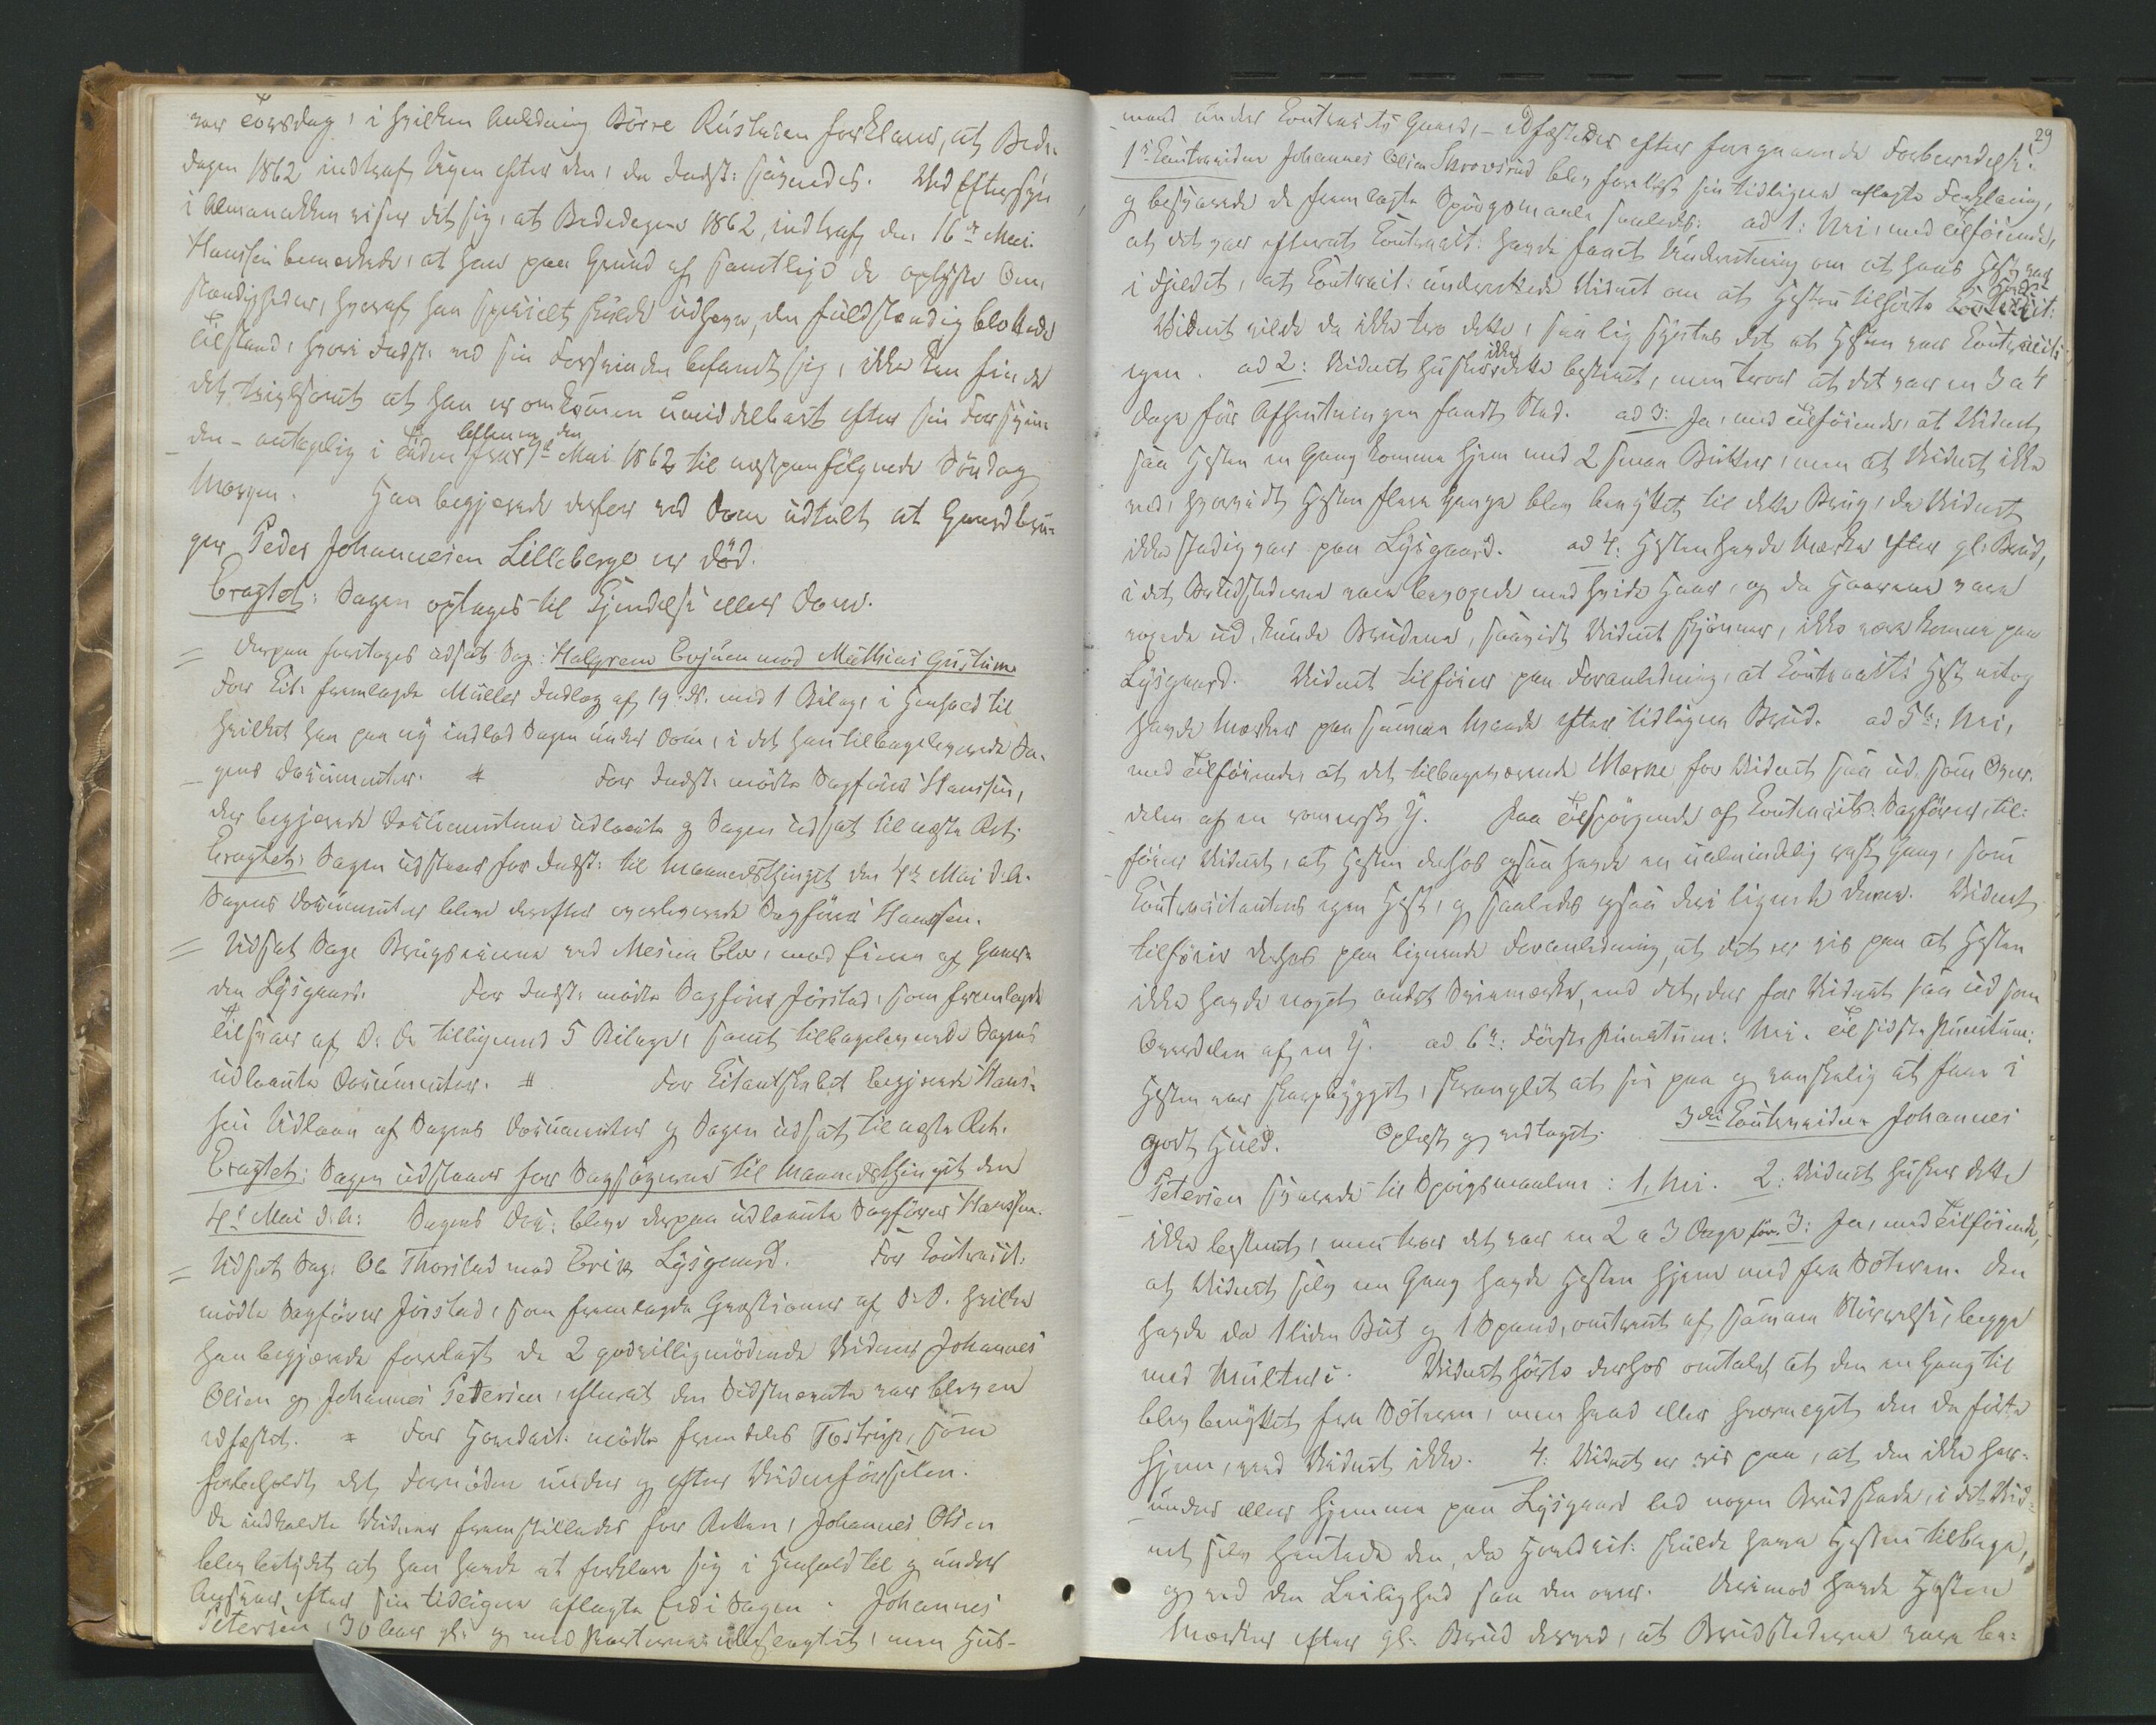 var Torsdag, i hvilken Anledning Börre Rustaden forklarer, at Bede-
dagen 1862 indtraf Ugen efter den, da Indst: savnedes. Ved Eftersyn
i Almanakken viser det sig, at Bededagen 1862, indtraf den 16de Mai.
Hanssen bemærkede, at han paa Grund af samtlige de oplyste Om-
stændigheder, hvoraf han specielt skulde udhæve, den fuldstændig blottede
Tilstand, hvori Indst: ved sin Forsvinden befandt sig, ikke kan finde
det tvivlsomt at han er omkommen umiddelbart efter sin Forsvin-
den – antagelig i Tiden fra Aftenen den 9de Mai 1862 til næstpaafölgende Söndag
Morgen. Han begjærede derfor ved Dom udtalt at Gaardbru-
ger Peder Johannesen Lilleberge er död.
Eragtet: Sagen optages til Kjendelse eller Dom.
= Derpaa foretoges udsat Sag: Halgrem Evjuen mod Mathias Gustum
For Cit: fremlagde Müller Indlæg af 19 ds. med 1 Bilag, i Henhold til
hvilket han paa ny indlod Sagen under Dom, i det han tilbageleverede Sa-
gens Documenter. # For Indst: mödte Sagförer Hanssen,
der begjærede Documenterne udlaante og Sagen udsat til næste Ret.
Eragtet: Sagen udstaaer for Indst: til Maanedsthinget den 4de Mai d. A.
Sagens Documenter bleve derefter overleverede Sagförer Hanssen.
= Udsat Sag: Brugseierne ved Mesna Elv, mod Eieren af Gaar-
den Lysgaard. For Indst: mödte Sagförer Jörstad, som fremlagde
Tilsvar af D. D. tilligemed 5 Bilage, samt tilbageleverede Sagens
udlaante Documenter. # For Citantskabet begjærede Hans-
sen Udlaan af Sagens Documenter og Sagen udsat til næste Ret.
Eragtet: Sagen udstaaer for Sagsögerne til Maanedsthinget den
4de Mai d. A: Sagens Doc: bleve derpaa udlaante Sagförer Hanssen.
= Udsat Sag: Ole Thorstad mod Erik Lysgaard. For Contracit.
mödte Sagförer Jörstad, som fremlagde Qvæstioner af D. D. hvilke
han begjærede forelagt de 2 godvilligmödende Vidner Johannes
Olsen og Johannes Petersen, efterat den Sidstnævnte var bleven
edfæstet. = For Hovedcit. mödte fremdeles Tostrup, som
forbeholdt det Fornödne under og efter Vidneförselen.
De indkaldte Vidner fremstilledes for Retten, Johannes Olsen
blev betydet at han havde at forklare sig i Henhold til og under
Ansvar efter sin tidligere aflagte Ed i Sagen. Johannes
Petersen, 30 Aar gl: og med Parterne ubeslægtet, men Huus-
29
mand under Contracits Gaard, – edfæstedes efter foregaaende Forberedelse.
1ste Contravidne Johannes Olsen Skrovsrud blev forelæst sin tidligere aflagte Forklaring,
og besvarede de fremlagte Spörgsmaale saaledes: ad 1: Nei, med Tilföiende,
at det var efterat Contracit: havde faaet Underretning om at hans Hest var
i Fjeldet, at Contracit: underrettede Vidnet om at Hesten tilhörte Hovedcit:
Vidnet vilde da ikke tro dette, saa lig syntes det at Hesten var Contracits
egen. ad 2: Vidnet husker ikke dette bestemt, men troer at det var en 3 a 4
Dage för Afhentningen fandt Sted. ad 3: Ja, med Tilföiende, at Vidnet
saa Hesten en Gang komme hjem med 2 smaa Bütter, men at Vidnet ikke
ved, hvorvidt Hesten flere Gange blev benyttet til dette Brug, da Vidnet
ikke stadig var paa Lysgaard. ad 4: Hesten havde Mærker efter gl: Brud,
i det Brudstederne vare bevoxede med hvide Haar, og da Haarene vare
voxede ud, kunde Brudene, saavidt Vidnet skjönner, ikke være komne paa
Lysgaard. Vidnet tilföier paa Foranledning, at Contracits Hest ogsaa
havde Mærker paa samme Maade efter tidligere Brud. ad 5te: Nei,
med Tilföiende at det tilbageværende Mærke for Vidnet saa ud som Over-
delen af en romersk Y. Paa Tilspörgende af Contracits Sagförer, til-
föier Vidnet, at Hesten derhos ogsaa havde en ualmindelig rask Gang, som
Contracitantens egen Hest, og saaledes ogsaa heri lignede denne. Vidnet
tilföier derhos paa lignende Foranledning, at det er vis paa at Hesten
ikke havde noget andet Brændemærke, end det, der for Vidnet saa ud som
Overdelen af en Y. ad 6te: Förste Punctum: Nei. Til sidste Punctum:
Hesten var skarpbygget, skranglet at see paa og vanskelig at faae i
godt Huld. Oplæst og vedtaget. 3die Contravidne Johannes
Petersen svarede til Spörgsmaalene: 1, Nei. 2: Vidnet husker dette
ikke bestemt, men troer det var en 2 a 3 Dage för. 3: Ja, med Tilföiende,
at Vidnet selv en Gang havde Hesten hjem med fra Sæteren. Den
havde da 1 liden Büt og 1 Spand, omtrent af samme Störrelse, begge
med Multer i. Vidnet hörte derhos omtalet at den en Gang til
blev benyttet fra Sæteren, men hvad eller hvormeget den da förte
hjem, veed Vidnet ikke. 4: Vidnet er vis paa, at den ikke her-
under eller hjemme paa Lysgaard led nogen Brudskade, i det Vid-
net selv hentede den, da Hovedcit: skulde have Hesten tilbage,
og ved den Leilighed saa den over. Derimod havde Hesten
Mærker efter gl: Brud derved, at Brudstederne vare be-